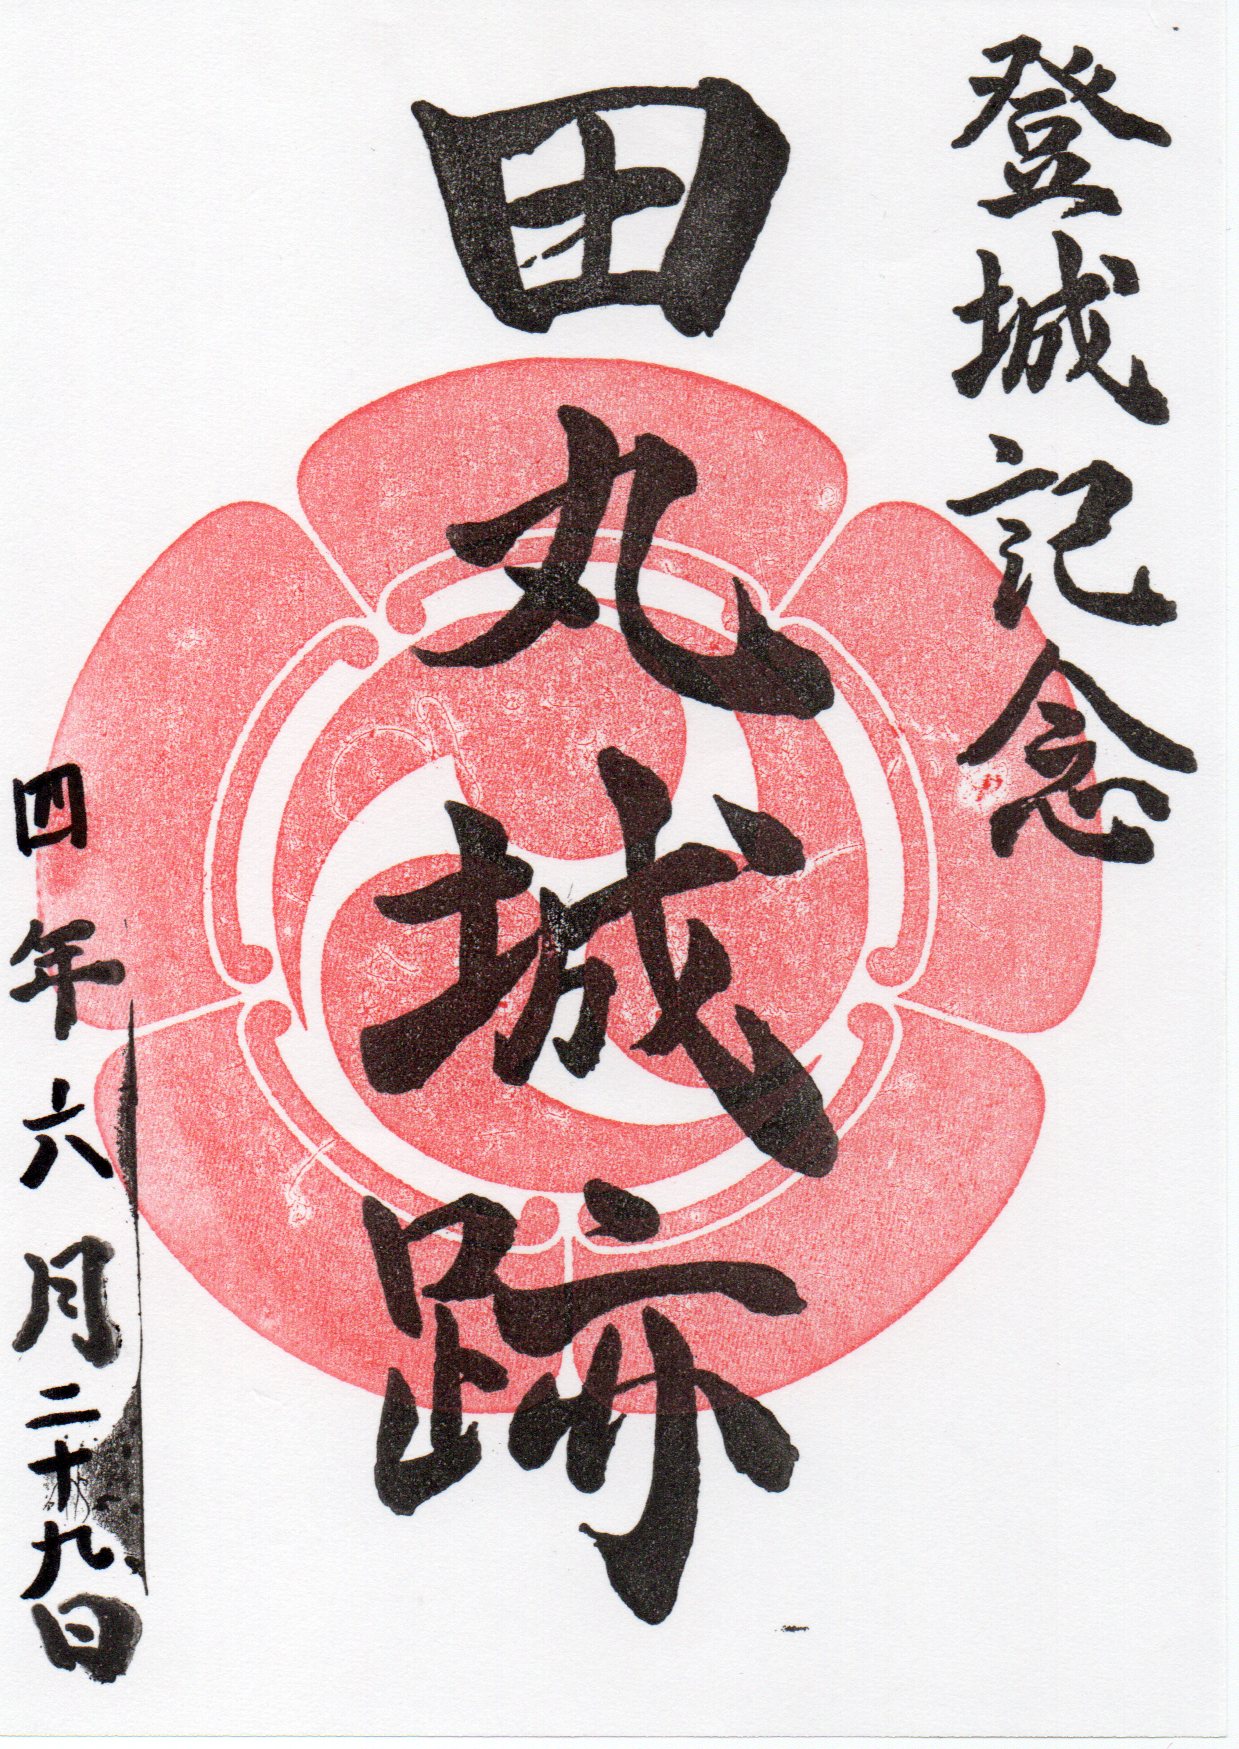 登城記念
田丸城跡
四年六月二十九日